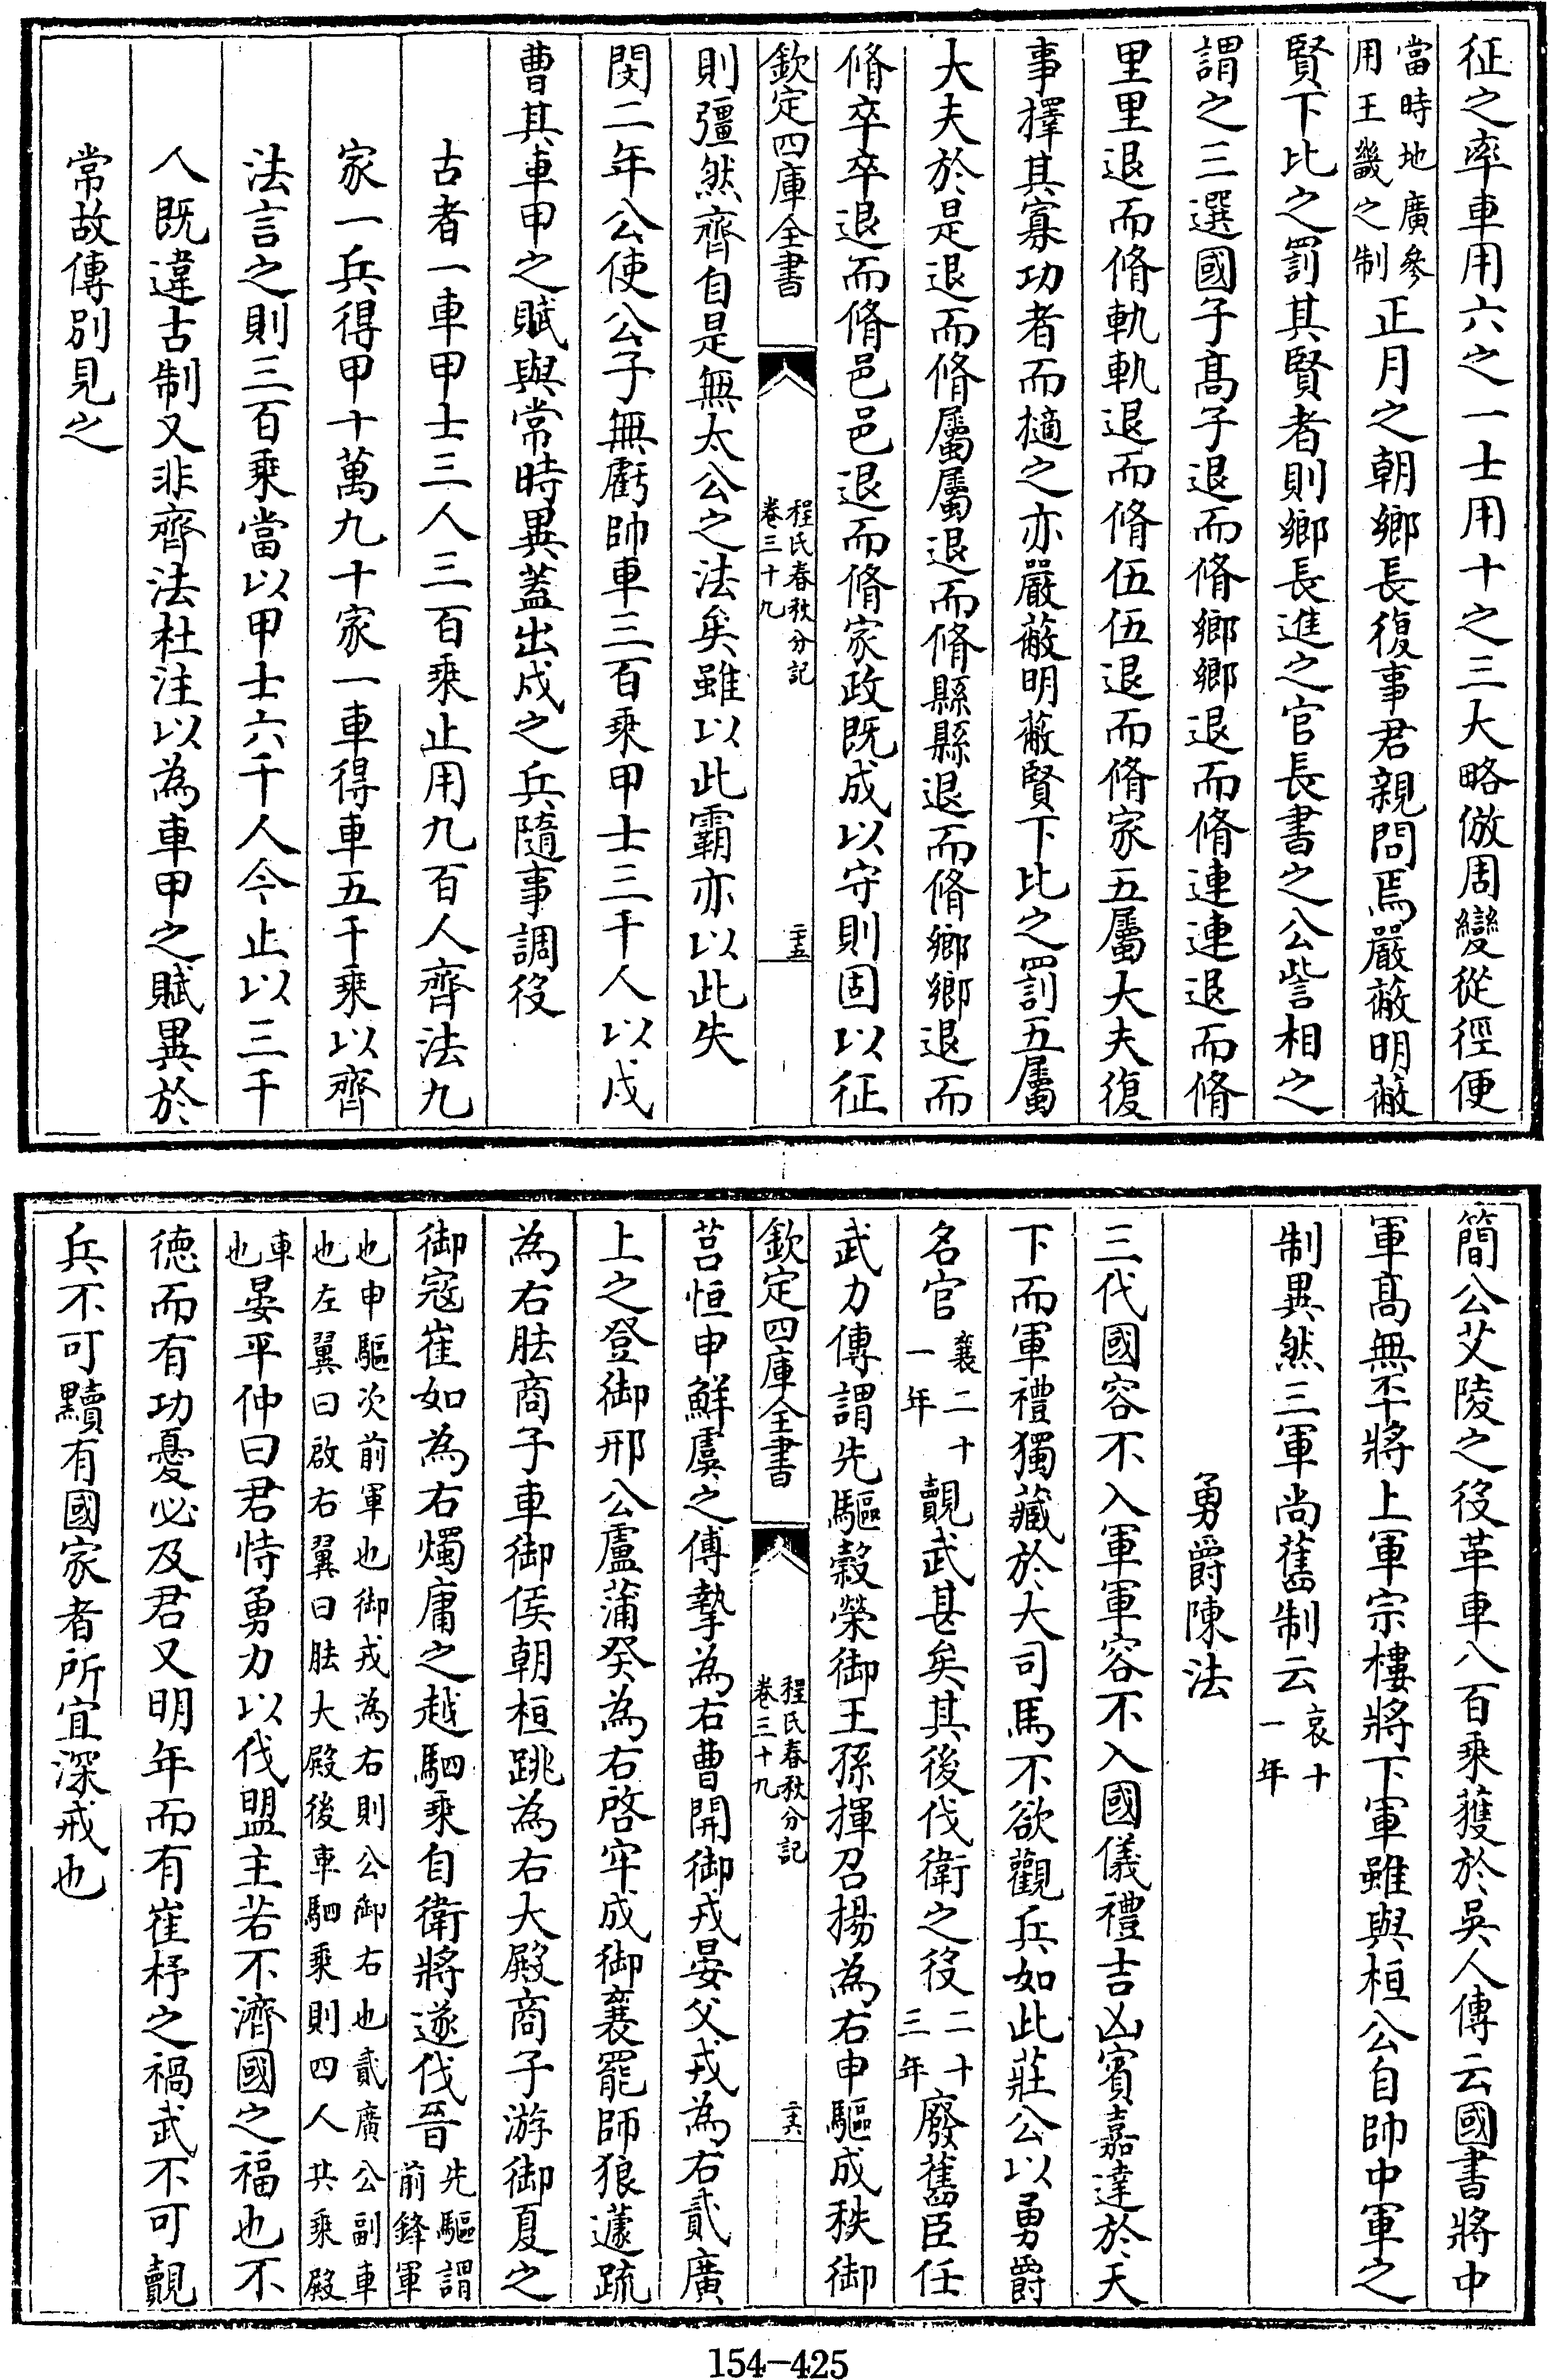 征之率車用六之一士用十之三大略倣周變從徑便
當時地廣參
用王畿之制
正月之朝鄉長復事君親問焉嚴蔽明蔽
賢下比之罰其賢者則鄉長進之官長書之公訾相之
謂之三選國子髙子退而脩鄉鄉退而脩連連退而脩
里里退而脩軌軌退而脩伍伍退而脩家五屬大夫復
事擇其寡功者而擿之亦嚴蔽明蔽賢下比之罰五屬
大夫於是退而脩屬屬退而脩縣縣退而脩鄉鄉退而
脩卒卒退而脩邑邑退而脩家政既成以守則固以征
欽定四庫全書
程氏春秋分記
卷三十九
二十五
則彊然齊自是無太公之法矣雖以此霸亦以此失
閔二年公使公子無虧帥車三百乗甲士三千人以戍
曹其車甲之賦與常時異蓋出戍之兵隨事調役
古者一車甲士三人三百乗止用九百人齊法九
家一兵得甲十萬九十家一車得車五千乗以齊
法言之則三百乗當以甲士六千人今止以三千
人既違古制又非齊法杜注以為車甲之賦異於
常故傳別見之
簡公艾陵之役革車八百乗獲於吳人傳云國書將中
軍髙無㔻將上軍宗樓將下軍雖與桓公自帥中軍之
制異然三軍尚舊制云
哀十
一年
勇爵陳法
三代國容不入軍軍容不入國儀禮吉凶賓嘉達於天
下而軍禮獨藏於大司馬不欲觀兵如此莊公以勇爵
名官
襄二十
一年
覿武甚矣其後伐衛之役
二十
三年
廢舊臣任
武力傳謂先驅榖榮御王孫揮召揚為右申驅成秩御
欽定四庫全書
程氏春秋分記
卷三十九
二十六
莒恒申鮮虞之傅摯為右曹開御戎晏父戎為右貳廣
上之登御邢公盧蒲癸為右啓牢成御襄罷師狼蘧疏
為右胠商子車御侯朝桓跳為右大殿商子游御夏之
御寇崔如為右燭庸之越駟乗自衛將遂伐晉
先驅謂
前鋒軍
也申驅次前軍也御戎為右則公御右也貳廣公副車
也左翼曰啟右翼曰胠大殿後車駟乗則四人共乗殿
車
也
晏平仲曰君恃勇力以伐盟主若不濟國之福也不
德而有功憂必及君又明年而有崔杼之禍武不可覿
兵不可黷有國家者所宜深戒也
154-425